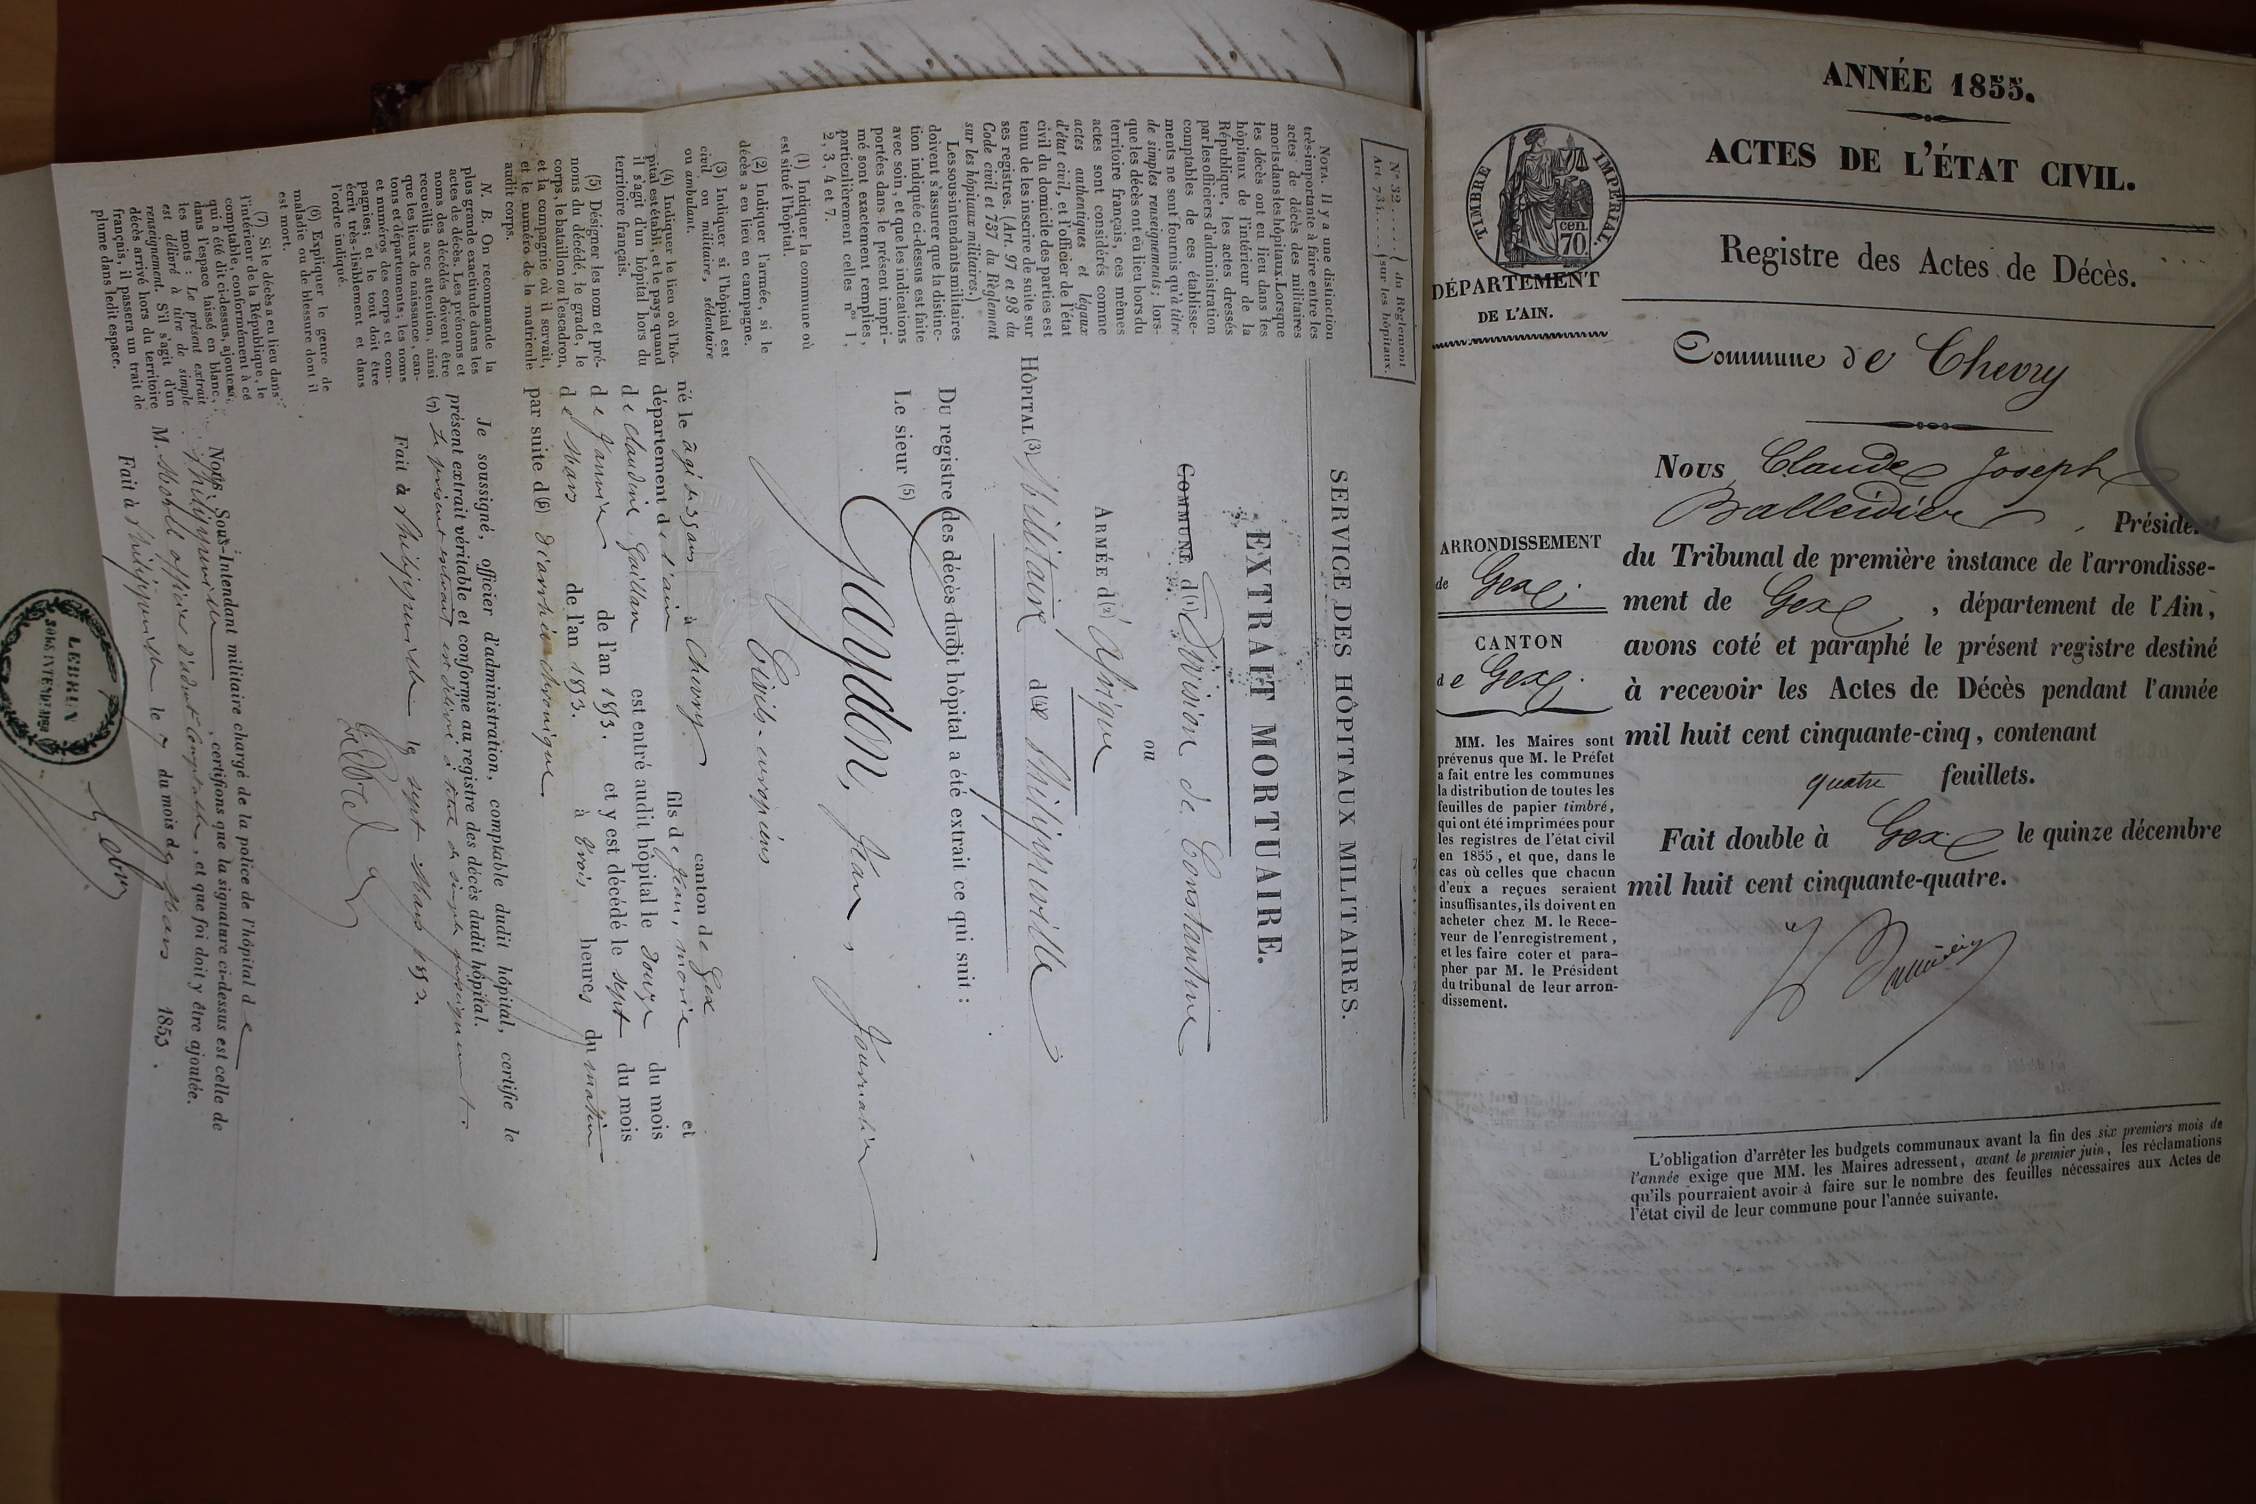 N° 32..... du Règlement
Art 734..... sur les hôpitaux.
SERVICE DES HÔPITAUX MILITAIRES.
EXTRAIT MORTUAIRE.
COMMUNE d(1) Division de Constantine
ou
ARMÉE d(2) Afrique
HÔPITAL (3) Militaire d(4)e Philippeville
Du registre des décès dudit hôpital a été extrait ce qui suit :
Le sieur (5)
Jean, Journalier
Civils-européens
né le âgé de 39 ans à Chevry canton de Gex
département de l'ain fils de Jean, Marie et
de Claudine est entré audit hôpital le douze du mois
de Janvier de l'an 1853. et y est décédé le sept du mois
de Mars de l'an 1853. à trois heures du matin
par suite d(6) diarrhée chronique.
Je soussigné, officier d'administration, comptable dudit hôpital, certifie le
présent extrait véritable et conforme au registre des décès dudit hôpital.
(7) Le présent extrait est délivré à titre de simple renseignement.
Fait à Philippeville le sept Mars 1853.
Nous, Sous-Intendant militaire chargé de la police de l'hôpital de
Philippeville, certifions que la signature ci-dessus est celle de
M. officier d'adm.on Comptable, et que foi doit y être ajoutée.
Fait à Philippeville le 7 du mois de Mars 1853.
LEBRUN
SOUS INTENDANT
NOTA. Il y a une distinction
très-importante à faire entre les
actes de décès des militaires
morts dans les hôpitaux. Lorsque
les décès ont eu lieu dans les
hôpitaux de l'intérieur de la
République, les actes dressés
par les officiers d'administration
comptables de ces établisse-
ments ne sont fournis qu'à titre
de simples renseignements; lors-
que les décès ont eu lieu hors du
territoire français, ces mêmes
actes sont considérés comme
actes authentiques et légaux
d'état civil, et l'officier de l'état
civil du domicile des parties est
tenu de les inscrire de suite sur
ses registres. (Art. 97 et 98 du
Code civil et 737 du Règlement
sur les hôpitaux militaires.)
Les sous-intendants militaires
doivent s'assurer que la distinc-
tion indiquée ci-dessus est faite
avec soin, et que les indications
portées dans le présent impri-
mé sont exactement remplies,
particulièrement celles nos 1,
2, 3, 4 et 7.
(1) Indiquer la commune où
est situé l'hôpital.
(2) Indiquer l'armée, si le
décès a eu lieu en campagne.
(3) Indiquer si l'hôpital est
civil ou militaire, sédentaire
ou ambulant.
(4) Indiquer le lieu où l'hô-
pital est établi, et le pays quand
il s'agit d'un hôpital hors du
territoire français.
(5) Désigner les nom et pré-
noms du décédé, le grade, le
corps, le bataillon ou l'escadron,
et la compagnie où il servait,
et le numéro de la matricule
audit corps.
N. B. On recommande la
plus grande exactitude dans les
actes de décès. Les prénoms et
noms des décédés doivent être
recueillis avec attention, ainsi
que les lieux de naissance, can-
tons et départements; les noms
et numéros des corps et com-
pagnies; et le tout doit être
écrit très-lisiblement et dans
l'ordre indiqué.
(6) Expliquer le genre de
maladie ou de blessure dont il
est mort.
(7) Si le décès a eu lieu dans
l'intérieur de la République, le
comptable, conformément à ce
qui a été dit ci-dessus, ajoutera,
dans l'espace laissé en blanc,
les mots : Le présent extrait
est délivré à titre de simple
renseignement. S'il s'agit d'un
décès arrivé hors du territoire
français, il passera un trait de
plume dans ledit espace.
ANNÉE 1855.
ACTES DE L'ÉTAT CIVIL.
TIMBRE IMPÉRIAL.
70 cen.
DÉPARTEMENT
DE L'AIN.
Registre des Actes de Décès.
Commune de Chevry
Nous Claude Joseph
Balleidier, Préside
du Tribunal de première instance de l'arrondisse-
ment de Gex, département de l'Ain,
avons coté et paraphé le présent registre destiné
à recevoir les Actes de Décès pendant l'année
mil huit cent cinquante-cinq, contenant
quatre feuillets.
Fait double à Gex le quinze décembre
mil huit cent cinquante-quatre.
ARRONDISSEMENT
de Gex.
CANTON
de Gex.
MM. les Maires sont
prévenus que M. le Préfet
a fait entre les communes
la distribution de toutes les
feuilles de papier timbré,
qui ont été imprimées pour
les registres de l'état civil
en 1855, et que, dans le
cas où celles que chacun
d'eux a reçues seraient
insuffisantes, ils doivent en
acheter chez M. le Rece-
veur de l'enregistrement,
et les faire coter et para-
pher par M. le Président
du tribunal de leur arron-
dissement.
L'obligation d'arrêter les budgets communaux avant la fin des six premiers mois de
l'année exige que MM. les Maires adressent, avant le premier juin, les réclamations
qu'ils pourraient avoir à faire sur le nombre des feuilles nécessaires aux Actes de
l'état civil de leur commune pour l'année suivante.